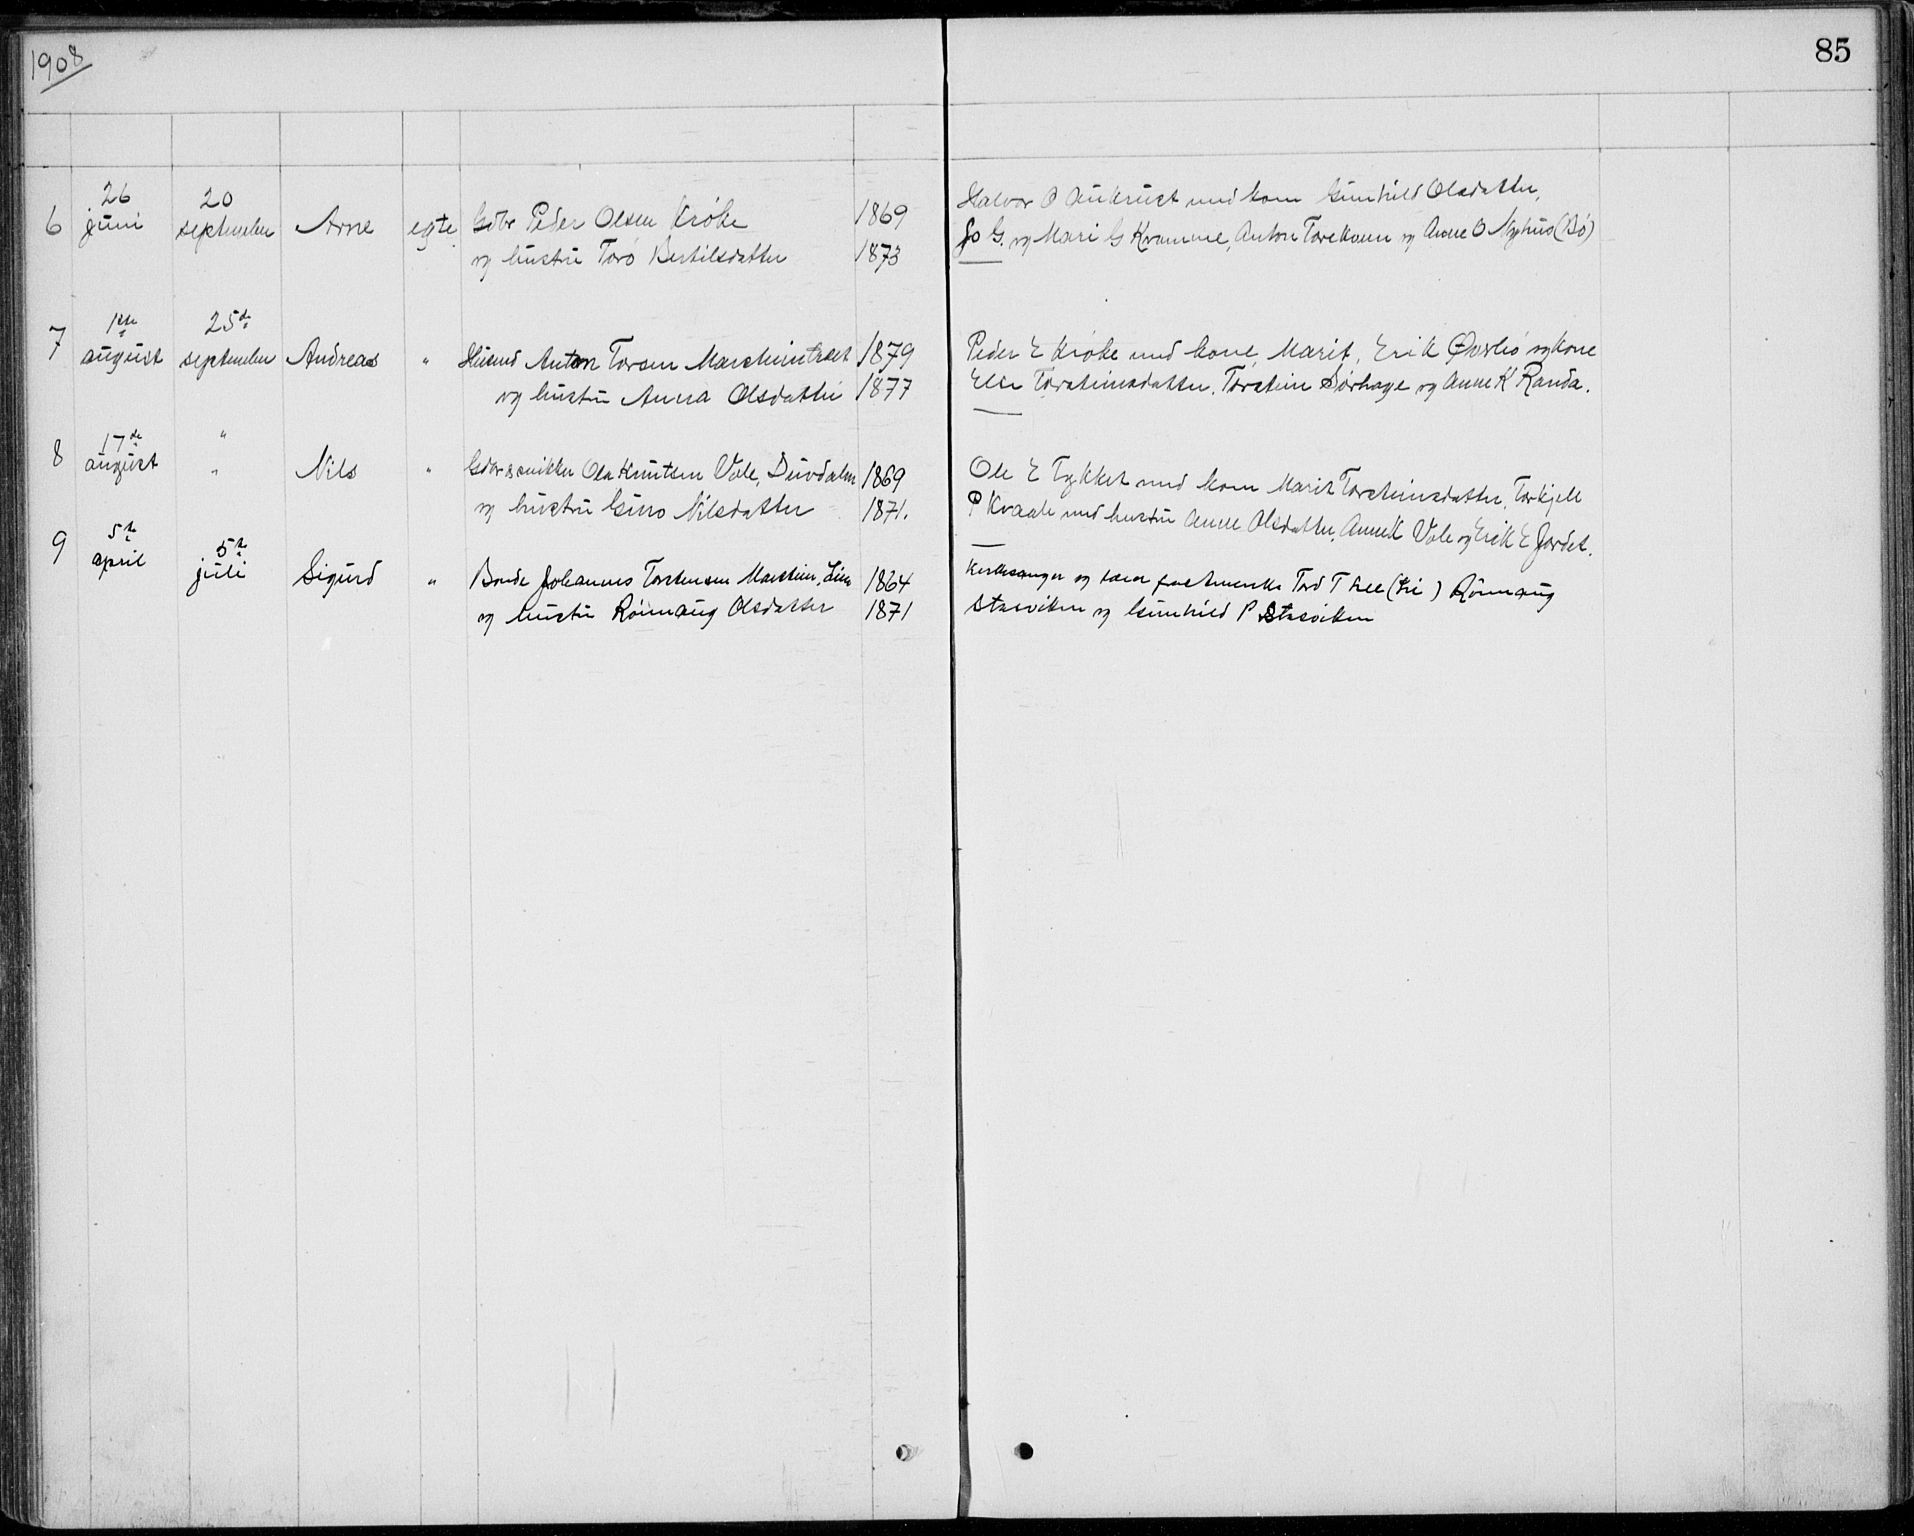 1908
85
6 26 juni 20 september Arne egte Gdbr Peder Olsen Kröke 1869
og hustru Torö Bertilsdatter 1873
Halvor O Aukrust med kone Gunhild Olsdatter,
Jo G. og Mari G Kramme, Anton og Anne O Nyhus (Bö)
7 1ste august 25de september Andreas " Husmd Anton Torsen 1879
og hustru Anna Olsdatter 1877
Peder E Kröke med kone Marit, Erik Øverbö og kone
Torsteinsdatter. Torstein Sörhage og Anne K Randa.
8 17de august " " Nils " Gdbr & snikker Ola Knutsen Vole, 1869
og hustru Guro Nilsdatter 1871.
Ole E med kone Marit Torsteinsdatter, Torkjell
P Kvaale med hustru Anne Olsdatter, Anne K Vole og Erik E Jordet.
9 5te april 5te juli Sigurd " Bonde Johannes Torstensen 1864
og hustru Rönnaug Olsdatter 1871
Kirkesanger og Tord T Rönnaug
Stavviken og Gunhild P Stavviken